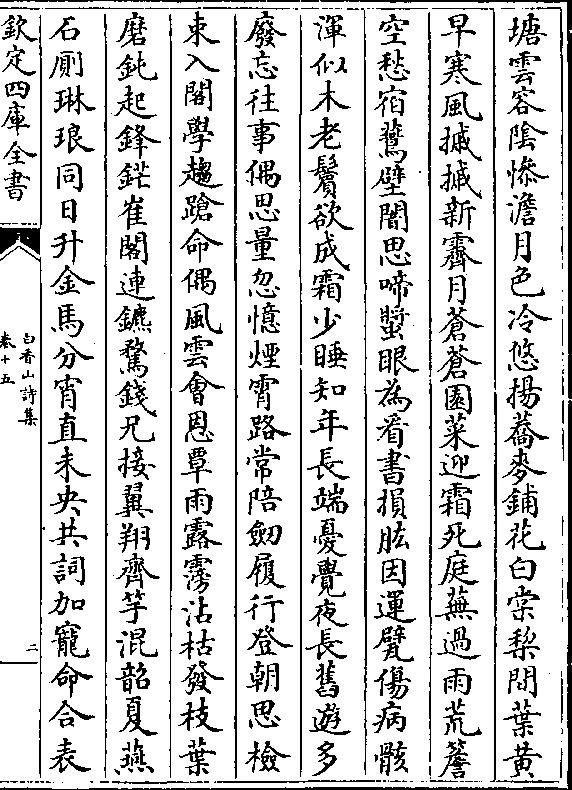 塘雲容陰慘澹月色冷悠揚蕎麥鋪花白棠梨間葉黃
早寒風摵摵新霽月蒼蒼園菜迎霜死庭蕪過雨荒簷
空愁宿鷰壁闇思啼螿眼為看書損肱因運甓傷病骸
渾似木老鬢欲成霜少睡知年長端憂覺夜長舊遊多
廢忘往事偶思量忽憶煙霄路常陪劒履行登朝思檢
束入閣學趨蹌命偶風雲會恩覃雨露霶沾枯發枝葉
磨鈍起鋒鋩崔閣連鑣騖錢兄接翼翔齊竽混韶夏燕
石厠琳琅同日升金馬分宵直未央共詞加寵命合表
欽定四庫全書
白香山詩集
卷十五
二